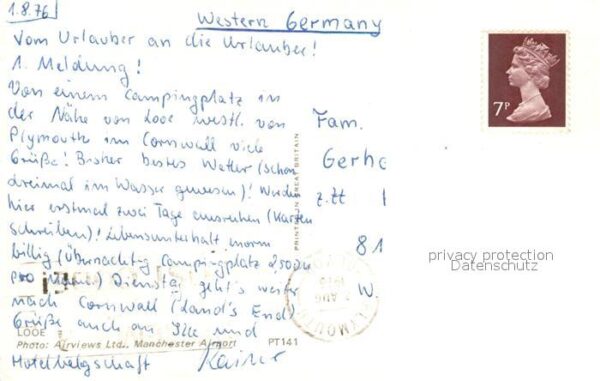 1.8.76
Western Germany
Vom Urlauber an die Urlauber!
1. Meldung!
Von einem Campingplatz in
der Nähe von Looe westl. von
Plymouth im Cornwall viele
Grüße! Bisher bestes Wetter (schon
dreimal im Wasser gewesen)! Werden
hier erstmal zwei Tage ausruhen (Karten
schreiben)! Lebensunterhalt enorm
billig (Übernachtg Campingplatz 2,50 DM
pro Mann!) Dienstag geht's weiter
nach Cornwall (Land's End)
Grüße auch an Ille und
Hotelbelegschaft Kaiser
LOOE
Photo: Airviews Ltd., Manchester Airport PT141
PRINTED IN GREAT BRITAIN
Fam.
Gerh
z.Zt
81
W.
7P
PLYMOUTH
AUG
1976
privacy protection
Datenschutz